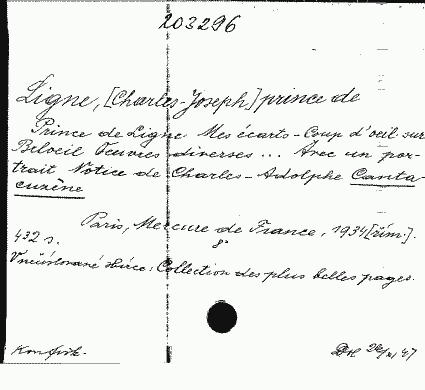 203296
Ligne, [Charles-Joseph] prince de
Prince de Ligne Mes écarts - Coup d'oeil sur
Beloeil Oeuvres diverses ... Avec un por-
trait Notice de Charles-Adolphe Canta-
cuzène
Paris, Mercure de France, 1934 [řím.].
432 s. 8°
Vnečíslované sbírce: Collection des plus belles pages.